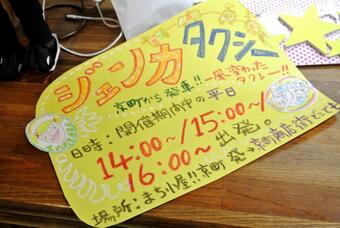 ジェンカ
タクシー
京町から発車!!一風変わった
タクシー!!
日時:開催期間中の平日
14:00~/15:00~/
16:00~出発。
場所:まち小屋!!京町発→京町商店街どこでも